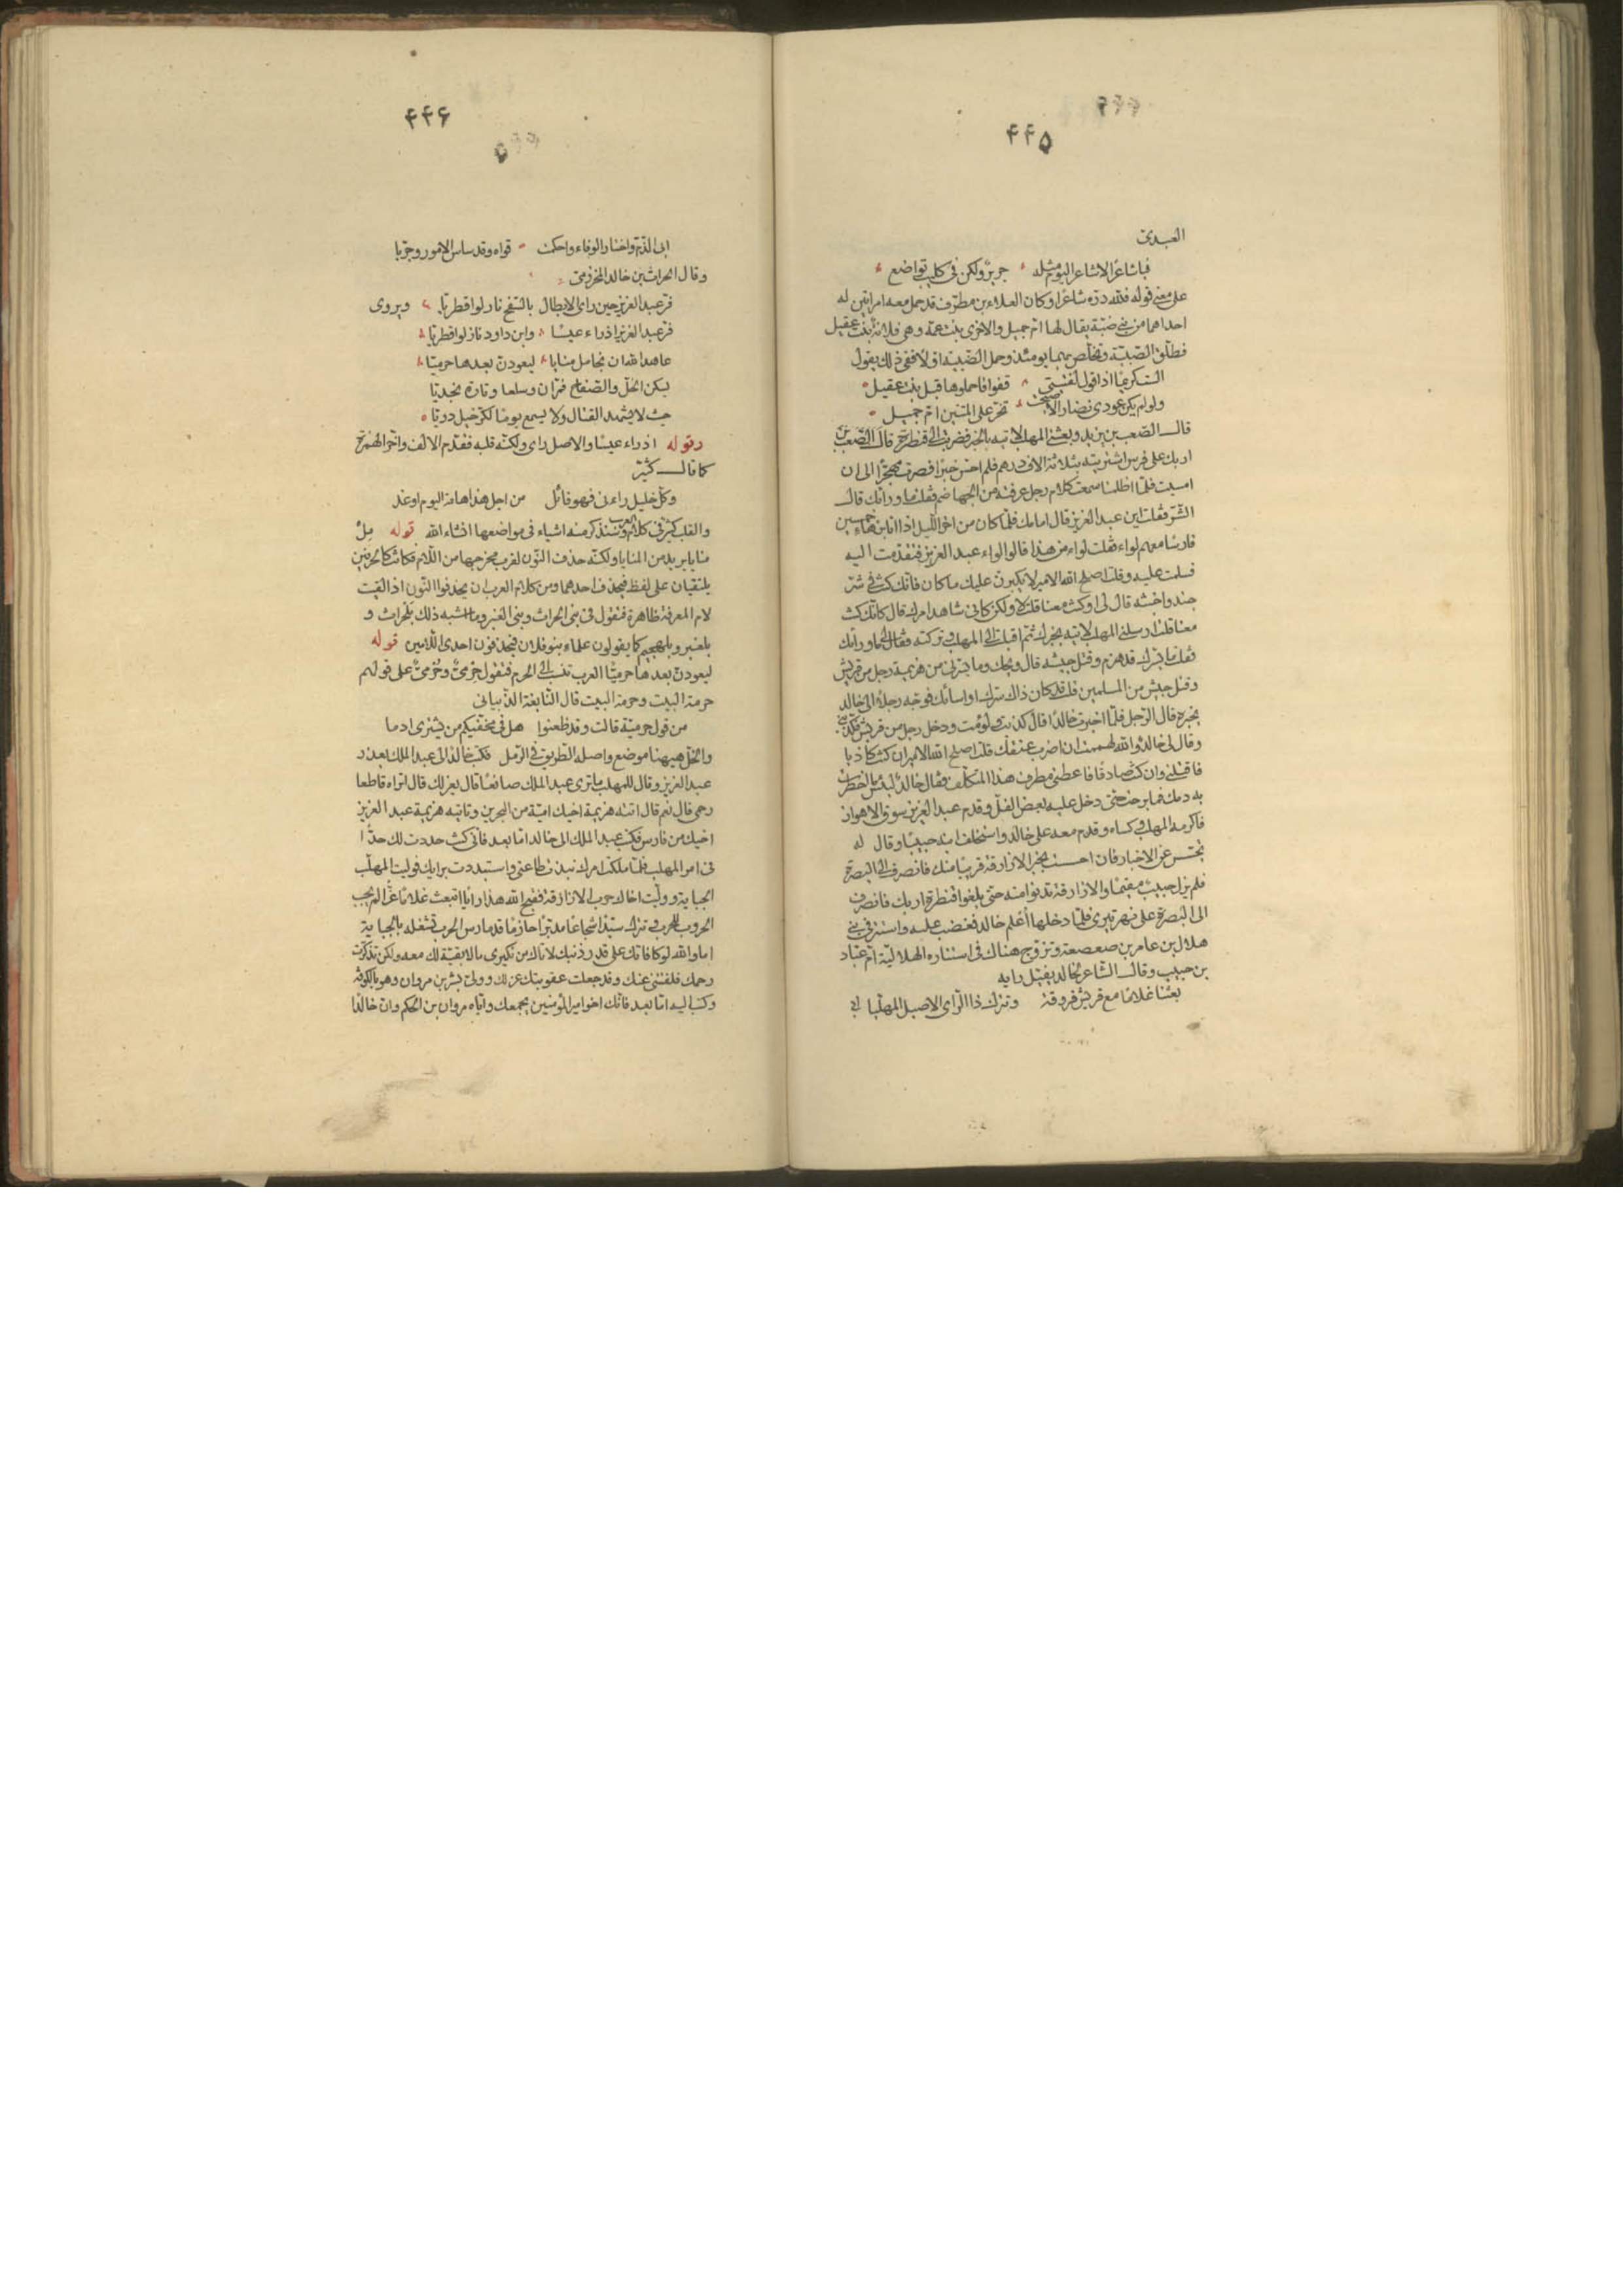 ۴۴۵
العبدى
فياشاعرًا لا شاعر اليوم مثله جريرٌ ولكن فى كليب تواضع
على معنى قوله فلله درّه شاعرًا وكان العلاء بن مطرّف قد حمل معه امراتين له
احداهما من بنى ضبّة يقال لها ام جميل والاخرى بنت عمّه وهى فلانة بنت عقيل
فطلّق الضبّيّة وتخلّص بهما يومئذ وحمل الضبّيّة اولا ففى ذلك يقول
الست كريمًا اذ اقول لفتيتى قفوا فاحملوها قبل بنت عقيل
ولو لم يكن عودى نضارا لاصبحت تخرّ على المتنين ام جميل
قال الصّعب بن يزيد وبعثنى المهلب لآتيه بالخبر فضربت الى قنطرة قال الصّعب بن
اربك على فرس اشتريته بثلاثة الاف درهم فلم احسّ خبرًا فصرت مهجّرًا الى ان
امسيت فلمّا اظلمنا سمعت كلام رجل عرفته من الجهاضم فقلت ما وراءك قال
الشّرّ فقلت اين عبد العزيز قال امامك فلمّا كان من اخر اللّيل اذا انا بزهاء خمسين
فارسًا معهم لواء فقلت لواء من هذا قالوا لواء عبد العزيز فتقدّمت اليه
فسلمت عليه وقلت اصلح الله الامير لا يكبرنّ عليك ما كان فانّك كنت فى شرّ
جند واخبثه قال لى او كنت معنا قلت لا ولكن كانى شاهد امرك قال كانّك كنت
معنا قلت ارسلنى المهلب لاتيه بخبرك ثمّ اقبلت الى المهلب وتركته فقال لى ما وراءك
فقلت ما يسّرك قد هزم وفتل جيشه قال ويحك وما يسرّنى من هزيمة رجل من قريش
وفتل جيش من المسلمين قلت قد كان ذاك سرّك او ساءك فوجّه رجلا الى خالد
بخبره قال الرّجل فلمّا اخبرت خالدًا قال كذبت ولؤمت ودخل رجل من قريش فكذّبنى
وقال لى خالد والله لهممت ان اضرب عنقك قلت اصلح الله الامير ان كنت كاذبا
فاقتلنى وان كنت صادقًا فاعطنى مطرف هذا المتكلّف فقال خالدٌ لبئس ما اخطرت
به دمك فما برحت حتى دخل عليه بعض الفلّ وقدم عبد العزيز سوق الاهواز
فاكرمه المهلب وكساه وقدم معه على خالد واستخلف ابنه حبيبًا وقال له
تجسّس عن الاخبار فان احسست بخبر الازارقة قريبًا منك فانصرف الى البصرة
فلم يزل حبيبٌ مقيمًا والازارقة تدنوا منه حتى بلغوا قنطرة اربك فانصرف
الى البصرة على نهر تيرى فلمّا دخلها اُعلم خالد فغضب عليه واستتر فى بنى
هلال بن عامر بن صعصعة وتزوّج هناك فى استتاره الهلاليّة امّ عبّاد
بن حبيب وقال الشّاعر لخالد يفيّل رايه
بعثنا غلامًا مع قريش فروقة وتترك ذا الرّاى الاصيل المهلّبا
۴۴۶
ابى الذّمّ واختار الوفاء واحكمت قواه وقد ساس الامور وجرّبا
وقال الحراث بن خالد المخزومىّ
فرّ عبد العزيز حين راى الابطال بالسّفح نازلوا قطريّا ويروى
فرّ عبد العزيز اذ راء عيسًا وابن داود نازلوا قطريّا
عاهد الله ان نجا مل منايا ليعودنّ بعدها حرميّا
يسكن الخلّ والصّفاح فمرّان وسلعا وتارة نجديّا
حيث لا يشهد القتال ولا يسمع يومًا لكرّ خيل دويّا
وقوله اذ راء عيسًا والاصل راى ولكنّه قلبه فقدّم الالف واخّر الهمزة
كما قال كثيّر
وكلّ خليل راءنى فهو قائل من اجل هذا هامة اليوم او غد
والقلب كثير فى كلام العرب وسنذكر منه اشياء فى مواضعها انشاء الله قوله مِلْ
منايا يريد من المنايا ولكنّه حذف النّون لقرب مخرجها من اللّام فكانتا كالحرفين
يلتقيان على لفظ فيحذف احدهما ومن كلام العرب ان يحذفوا النّون اذا لقيت
لام المعرفة ظاهرة فتقول فى بنى الحراث وبنى العنبر وما اشبه ذلك بلحراث و
بلعنبر وبلهجيم كما يقولون علماء بنو فلان فيحذفون احدى اللّامين قوله
ليعودنّ بعدها حرميّا العرب تنسب الى الحرم فتقول حِرمىٌّ وحُرمىٌّ على قولهم
حرمة البيت وحرمة البيت قال النّابغة الذّبيانى
من قول حرميّة قالت وقد ظعنوا هل فى مخفّيكم من يشترى ادما
والخلّ هيهنا موضع واصله الطّريق فى الرّمل فكتب خالدٌ الى عبد الملك بعذر
عبد العزيز وقال للمهلب ما ترى عبد الملك صانعًا قال يعزلك قال اتراه قاطعا
رحمى قال نعم قال اتته هزيمة اخيك اميّة من البحرين وتاتيه هزيمة عبد العزيز
اخيك من فارس فكتب عبد الملك الى خالد امّا بعد فانّى كنت حددت لك حدّا
فى امر المهلب فلمّا ملكت امرك نبذت طاعتى واستبددت برايك فوليت المهلّب
الجباية وولّيت اخاك حرب الازارقة فقبح الله هذا رايًا اتبعث غلامًا غرًّا لم يجب
الحروب للحرب وتترك سيّدًا شجاعًا مدبّرًا حازمًا قد مارس الحرب تشغله بالجباية
اما والله لو كافاتك على قدر ذنبك لاتاك من نكيرى ما لا بقيّة لك معه ولكن تذكّرت
رحمك فلفتتنى عنك وقد جعلت عقوبتك عزلك وولىّ بشر بن مروان وهو بالكوفة
وكتب اليه امّا بعد فانّك اخو امير المؤمنين يجمعك وايّاه مروان بن الحكم وان خالدًا